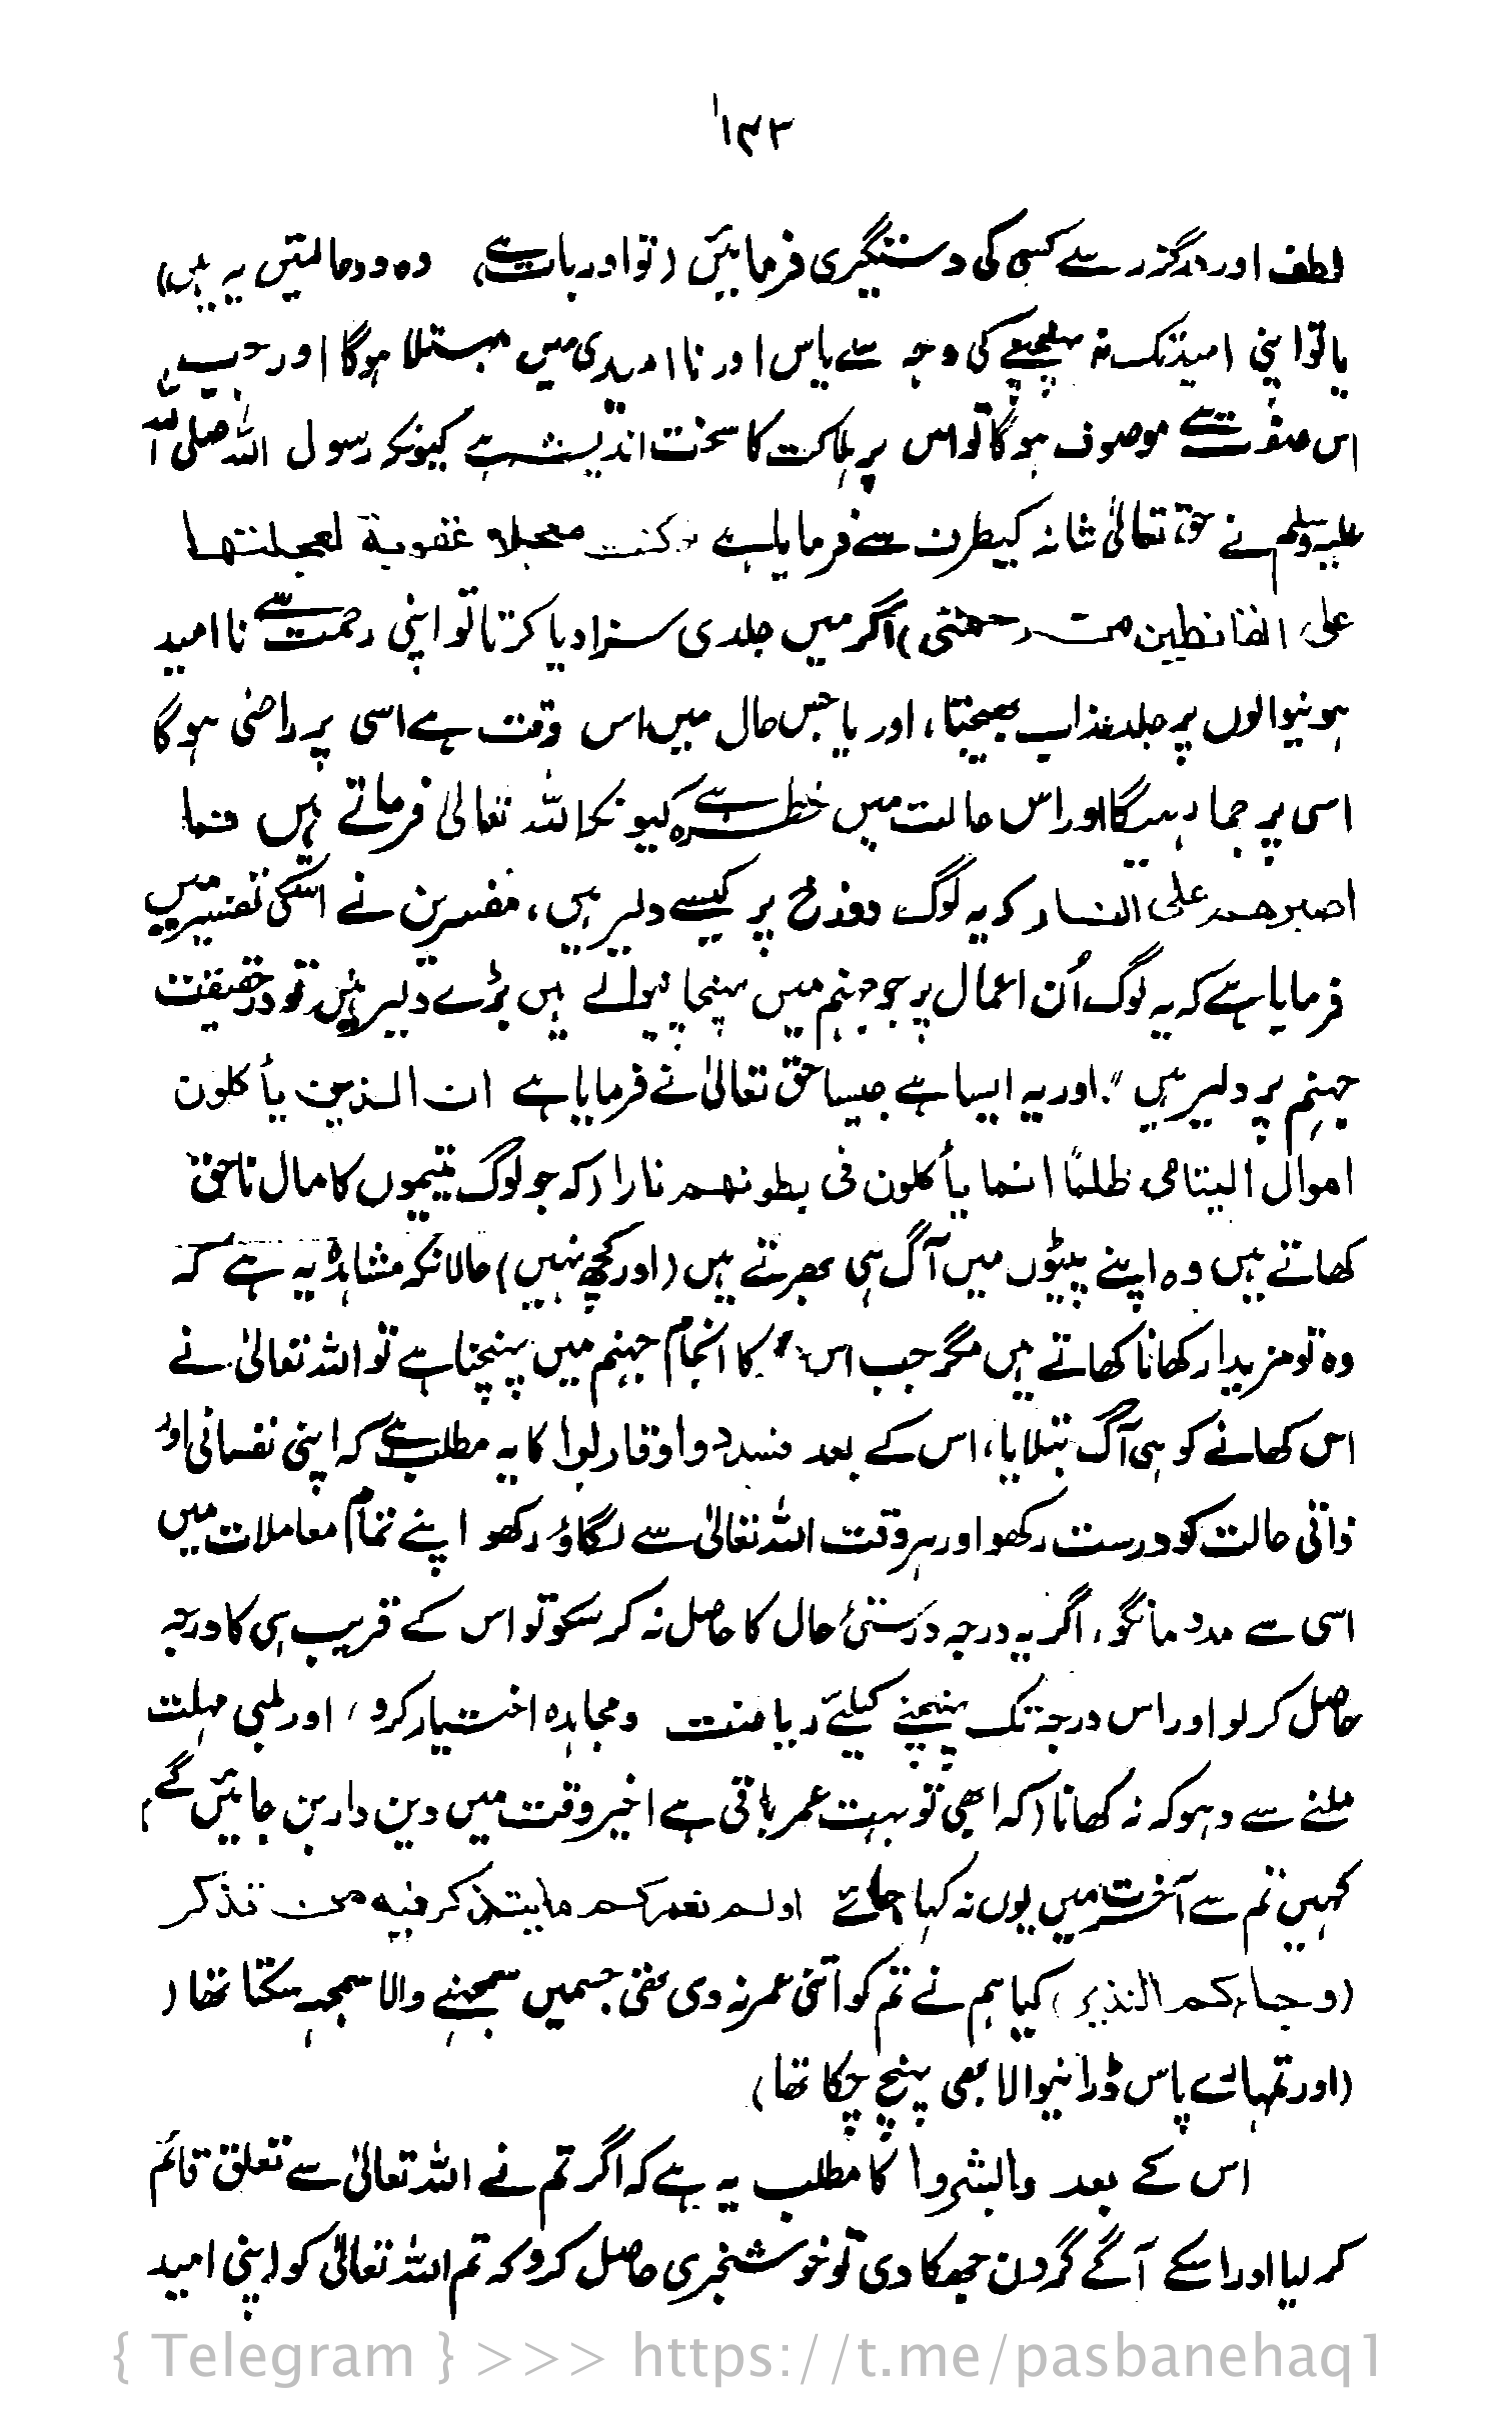 ۱۴۳
لطف اور درگزر سے کسی کی دستگیری فرمائیں (تو اور بات ہے) وہ دو حالتیں یہ ہیں)
یا تو اپنی امید تک نہ پہنچنے کی وجہ سے یاس اور نا امیدی میں مبتلا ہوگا اور جب
اس صفت سے موصوف ہوگا تو اس پر ہلاکت کا سخت اندیشہ ہے کیونکہ رسول اللہ صلی اللہ
علیہ وسلم نے حق تعالیٰ شانہ کیطرف سے فرمایا ہے لوکنت معجلا عقوبة لعجلتها
على القانطين من رحمتى) اگر میں جلدی سزا دیا کرتا تو اپنی رحمت سے نا امید
ہونیوالوں پر جلد عذاب بھیجتا، اور یا جس حال میں اس وقت ہے اسی پر راضی ہوگا
اسی پر جما رہیگا اور اس حالت میں خطرہ ہے کیونکہ اللہ تعالیٰ فرماتے ہیں فما
اصبرهم على النار کہ یہ لوگ دوزخ پر کیسے دلیر ہیں، مفسرین نے اسکی تفسیر میں
فرمایا ہے کہ یہ لوگ اُن اعمال پر جو جہنم میں پہنچانیوالے ہیں بڑے دلیر ہیں تو درحقیقت
جہنم پر دلیر ہیں ". اور یہ ایسا ہے جیسا حق تعالیٰ نے فرمایا ہے ان الذين يأكلون
اموال اليتامى ظلمًا انما يأكلون فى بطونهم نارا (کہ جو لوگ یتیموں کا مال ناحق
کھاتے ہیں وہ اپنے پیٹوں میں آگ ہی بھرتے ہیں (اور کچھ نہیں) حالانکہ مشاہدہ یہ ہے کہ
وہ تو مزیدار کھانا کھاتے ہیں مگر جب اس کا انجام جہنم میں پہنچنا ہے تو اللہ تعالیٰ نے
اس کھانے کو ہی آگ بتلایا، اس کے بعد فسددوا وقاربوا کا یہ مطلب ہے کہ اپنی نفسانی اور
ذاتی حالت کو درست رکھو اور ہر وقت اللہ تعالیٰ سے لگاؤ رکھو اپنے تمام معاملات میں
اسی سے مدد مانگو، اگر یہ درجہ درستئ حال کا حاصل نہ کر سکو تو اس کے قریب ہی کا درجہ
حاصل کر لو اور اس درجہ تک پہنچنے کیلئے ریاضت و مجاہدہ اختیار کرو، اور لمبی مہلت
ملنے سے دہوکہ نہ کھانا (کہ ابھی تو بہت عمر باقی ہے اخیر وقت میں دین دار بن جائیں گے)
کہیں تم سے آخرت میں یوں نہ کہا جائے اولم نعمركم مايتذكر فيه من تذكر
(وجاءكم النذير) کیا ہم نے تم کو اتنی عمر نہ دی تھی جسمیں سمجھنے والا سمجھ سکتا تھا (
(اور تمہارے پاس ڈرانیوالا بھی پہنچ چکا تھا)
اس کے بعد وابشروا کا مطلب یہ ہے کہ اگر تم نے اللہ تعالیٰ سے تعلق قائم
کر لیا اور اسکے آگے گردن جھکا دی تو خوشنجری حاصل کرو کہ تم اللہ تعالیٰ کو اپنی امید
{ Telegram } >>> https://t.me/pasbanehaq1